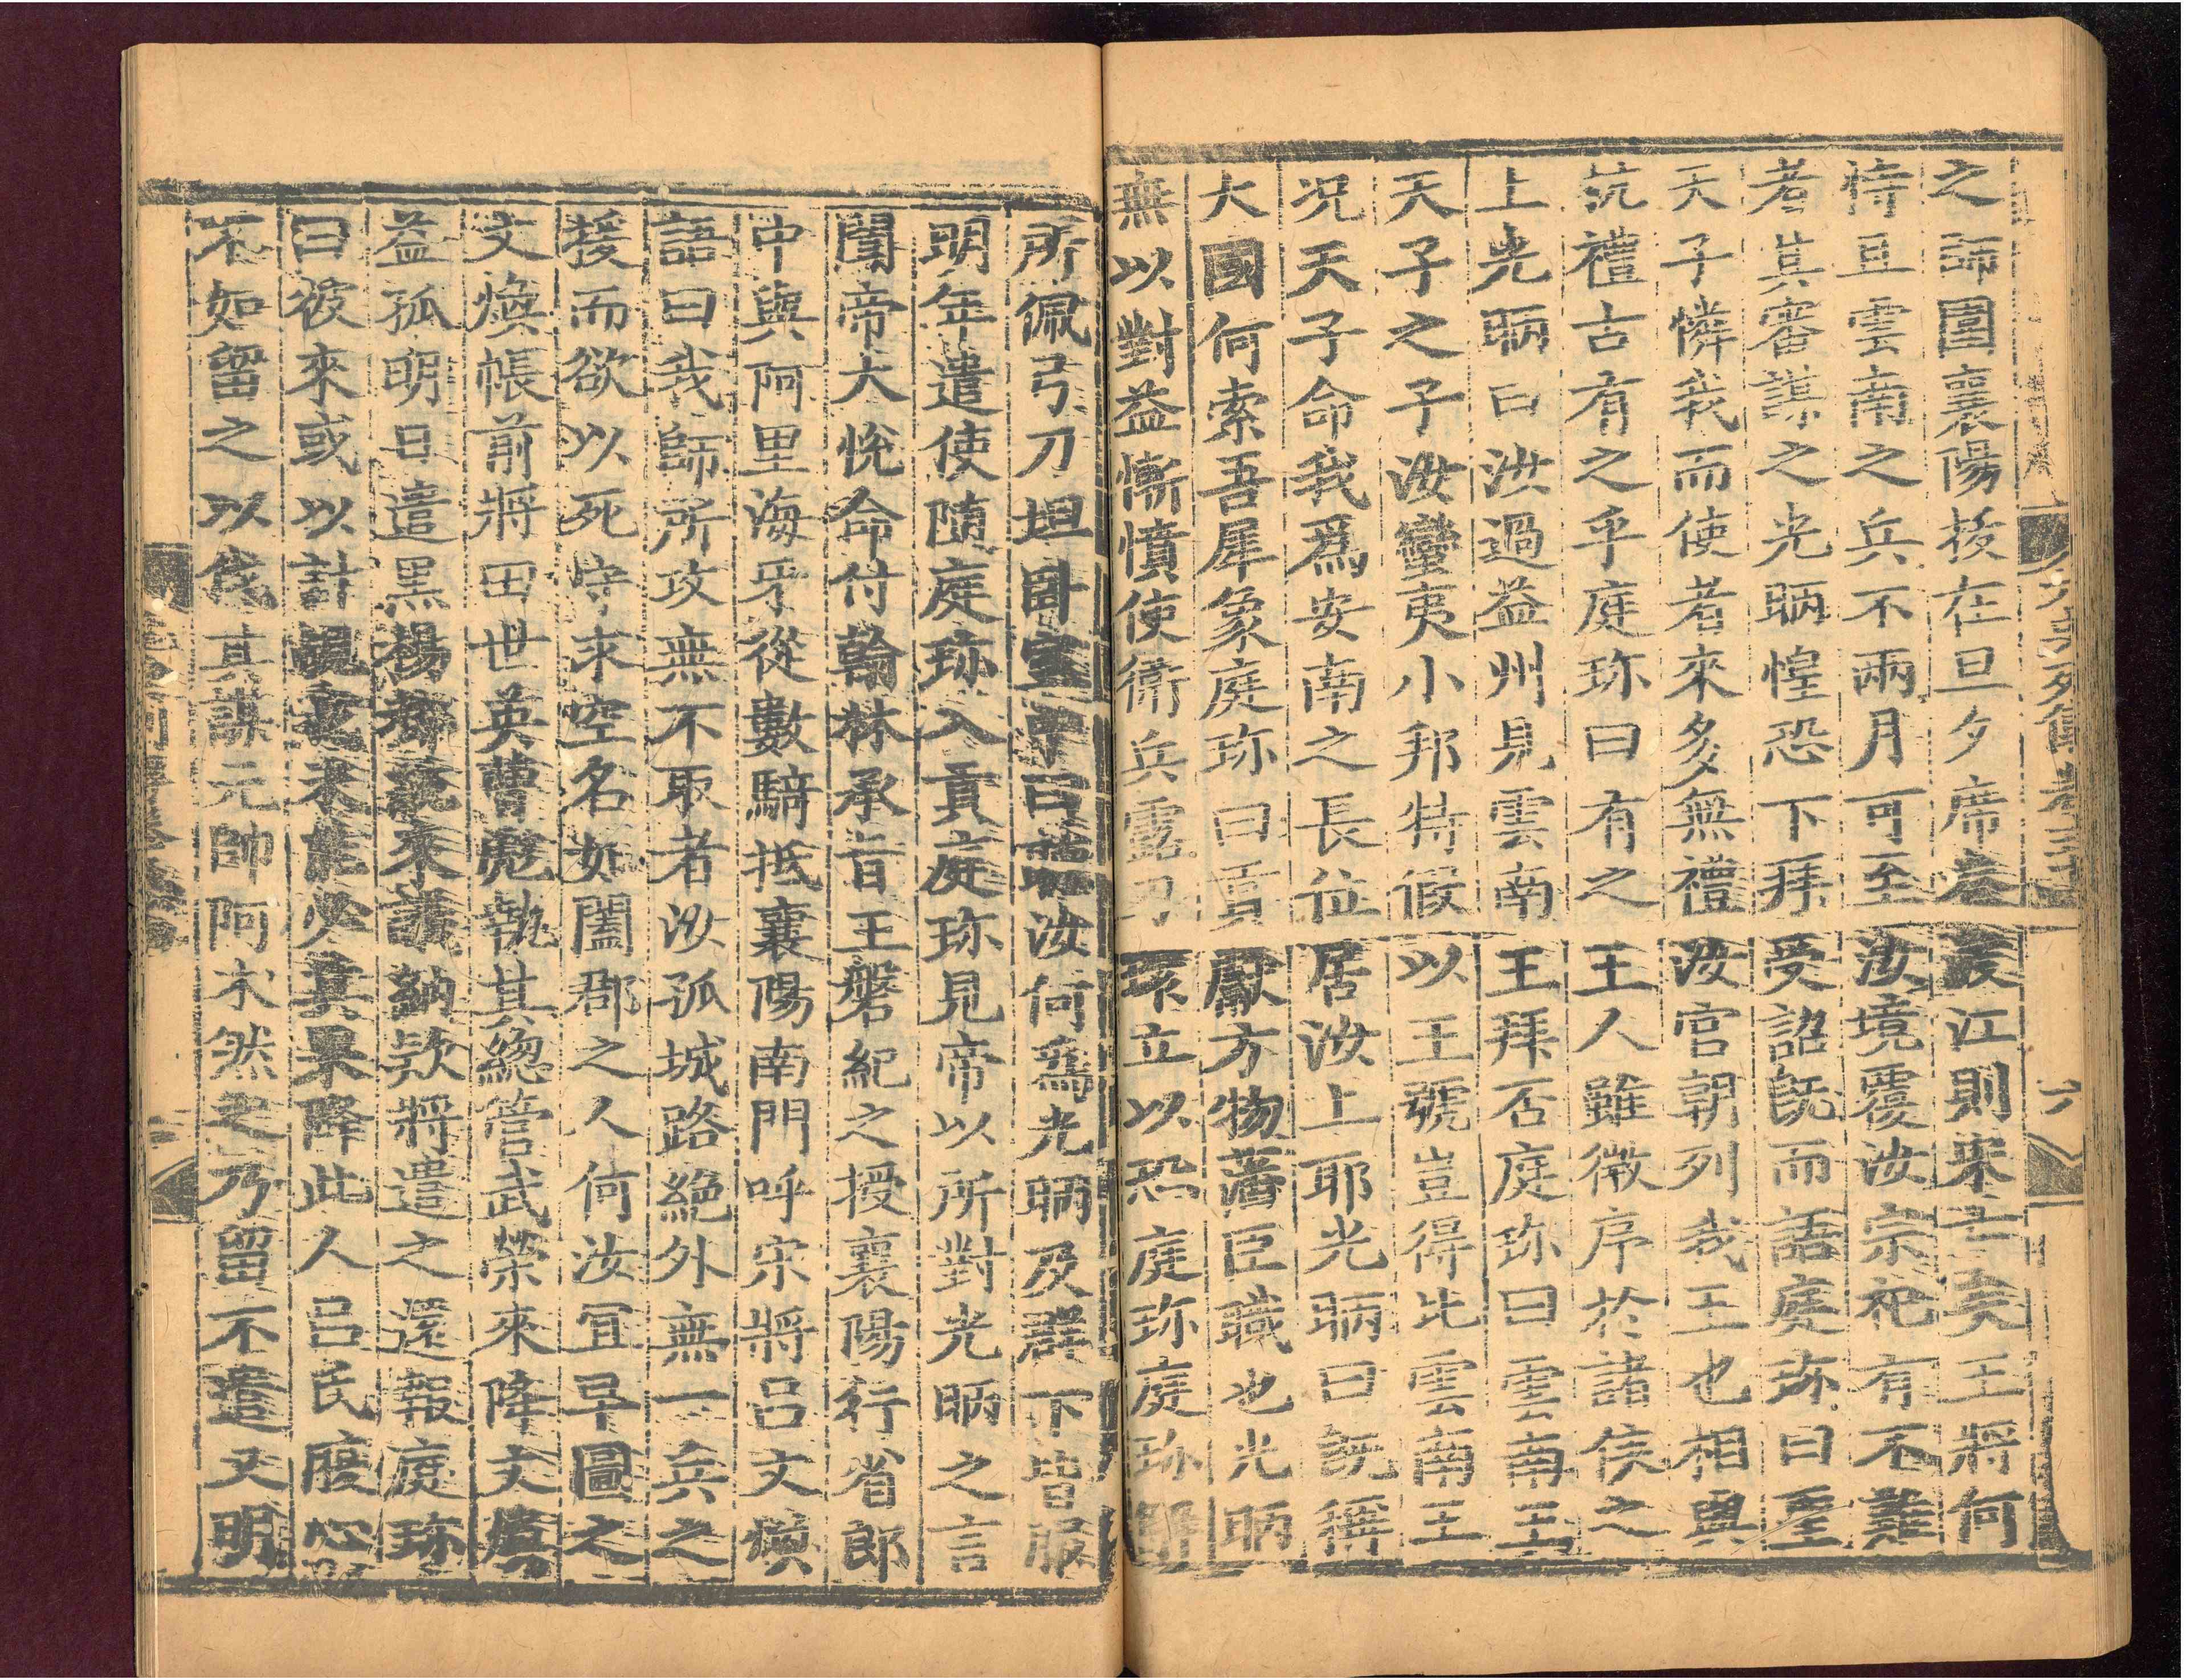 之師圍襄陽拔在旦夕席卷渡江則宋亡矣王將何
恃且雲南之兵不兩月可至汝境覆汝宗祀有不難
者其審謀之光昞惶恐下拜受詔旣而語庭珍曰聖
天子憐我而使者來多無禮汝官朝列我王也相與
抗禮古有之乎庭珍曰有之王人雖微序於諸侯之
上光昞曰汝過益州見雲南王拜否庭珍曰雲南王
天子之子汝蠻夷小邦特假以王號豈得比雲南王
况天子命我爲安南之長位居汝上耶光昞曰旣稱
大國何索吾犀象庭珍曰貢獻方物藩臣職也光昞
無以對益慚憤使衛兵露刃環立以恐庭珍庭珍解
所佩弓刀坦卧室中曰聽汝何爲光昞及群下皆服
明年遣使隨庭珍入貢庭珍見帝以所對光昞之言
聞帝大悅命付翰林承旨王磐紀之授襄陽行省郎
中與阿里海牙從數騎抵襄陽南門呼宋將呂文煥
語曰我師所攻無不取者汝孤城路絶外無一兵之
援而欲以死守求空名如闔郡之人何汝宜早圖之
文煥帳前將田世英曹彪執其緫管武榮來降文煥
益孤明日遣黑楊都統來議納欵將遣之還報庭珍
曰彼來或以計覘我未能必其果降此人呂氏腹心
不如留之以伐其謀元帥阿朮然之乃留不遣又明